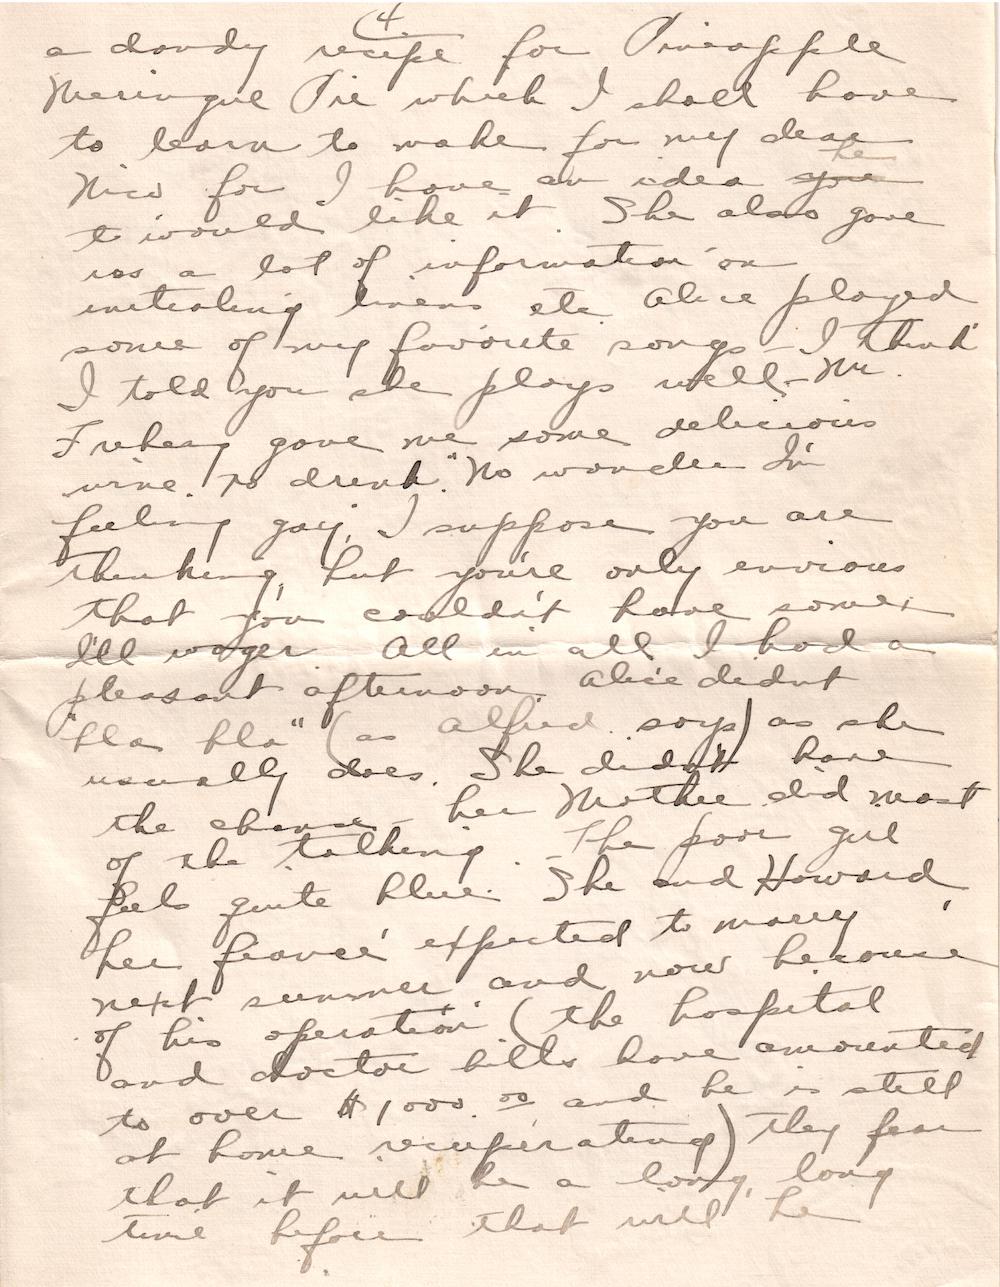 4.
a dandy recipe for Pineapple
Meringue Pie which I shall have
to learn to make for my dear
he
Nico for I have an idea you
t'would like it She also gave
us a lot of information on
initialing linens etc. Alice played
some of my favorite songs – I think
I told you she plays well – Mr.
gave me some delicious
wine to drink. "No wonder I'm
feeling gay, I suppose you are
thinking, but you're only envious
that you couldn't have some,
I'll wager All in all I had a
pleasant afternoon. Alice didn't
"bla bla" (as Alfred says) as she
usually does. She didn't have
the chance – her Mother did most
of the talking. – The poor girl
feels quite blue. She and Howard
her fiancé expected to marry
next summer and now because
of his operation (the hospital
and doctor bills have amounted
to over $1000.00 and he is still
at home recuperating) they fear
that it will be a long, long
time before that will be